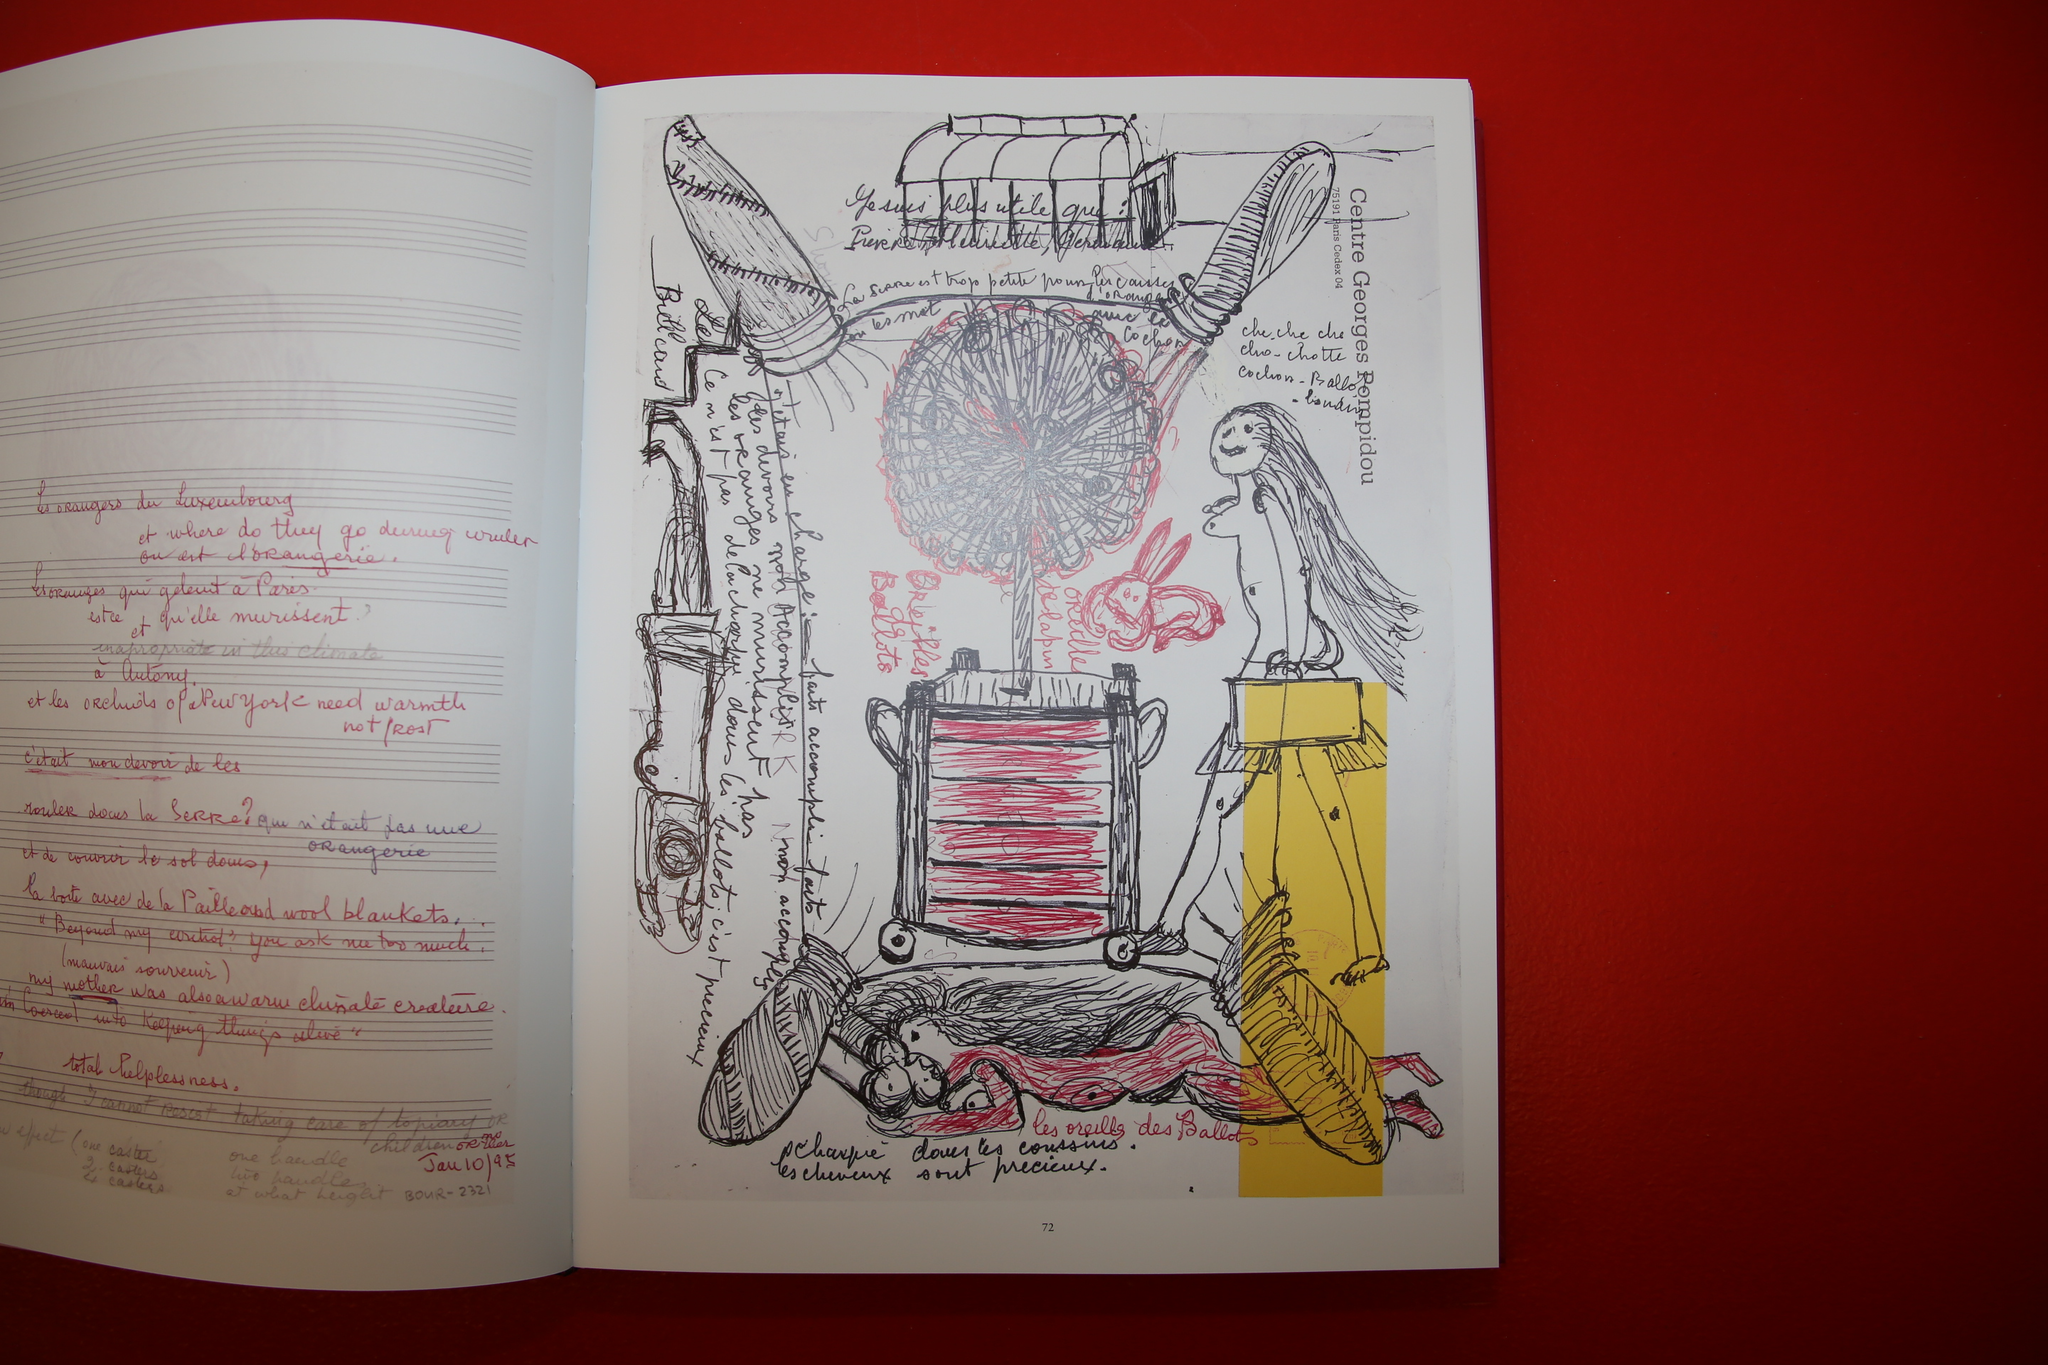 les orangers du Luxembourg
et where do they go during winter
ou est l'orangerie.
les oranges qui gelent à Paris
estce qu'elle murissent?
et
inapropriate in this climate
à Antony.
et les orchids of New York need warmth
not frost
c'était mon devoir de les
rouler dans la Serre? qui n'était pas une
orangerie
et de couvrir le sol dans,
la boite avec de la Paille and wool blankets...
"Beyond my control", you ask me too much.
(mauvais souvenir)
my mother was also a warm climate creature.
into keeping things alive"
total helplessness.
though I cannot resist taking care of topiary or
children or
Jan 10/95
effect (one caster one handle
2 casters two handles
4 casters et what height BOUR-2321
Je suis plus utile que:
Pierre, Henriette,
La Serre est trop petite pour les caisses
d'oranges
ou les met avec le
Cochon
Centre Georges Pompidou
75191 Paris Cedex 04
che che che
cho-chotte
cochon-Ballot
-boudin
Le
Billard
n'étais en charge - faits accomplis faits
des devoirs non Accomplis
non accomplis
les oranges ne murissent pas
Ce n'est pas de la charpie dans les ballots; c'est precieux
Oreilles
Ballots
oreille
de lapin
les oreilles des Ballots
charpie dans les coussins.
les cheveux sont precieux.
72